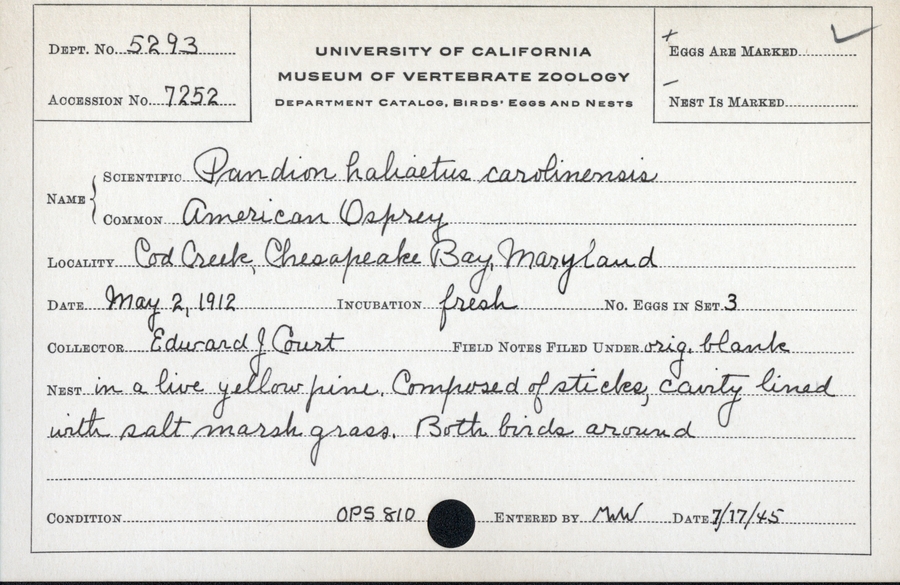 Dept. No. 5293
Accession No. 7252
UNIVERSITY OF CALIFORNIA
MUSEUM OF VERTEBRATE ZOOLOGY
Department Catalog, Birds' Eggs and Nests
+ Eggs Are Marked ✓
– Nest Is Marked
Name { Scientific Pandion haliaetus carolinensis
Common American Osprey
Locality Cod Creek, Chesapeake Bay, Maryland
Date May 2, 1912 Incubation fresh No. Eggs in Set 3
Collector Edward J Court Field Notes Filed Under orig. blank
Nest in a live yellow pine. Composed of sticks, cavity lined
with salt marsh grass. Both birds around
Condition OPS 810 Entered by MWW Date 7/17/45